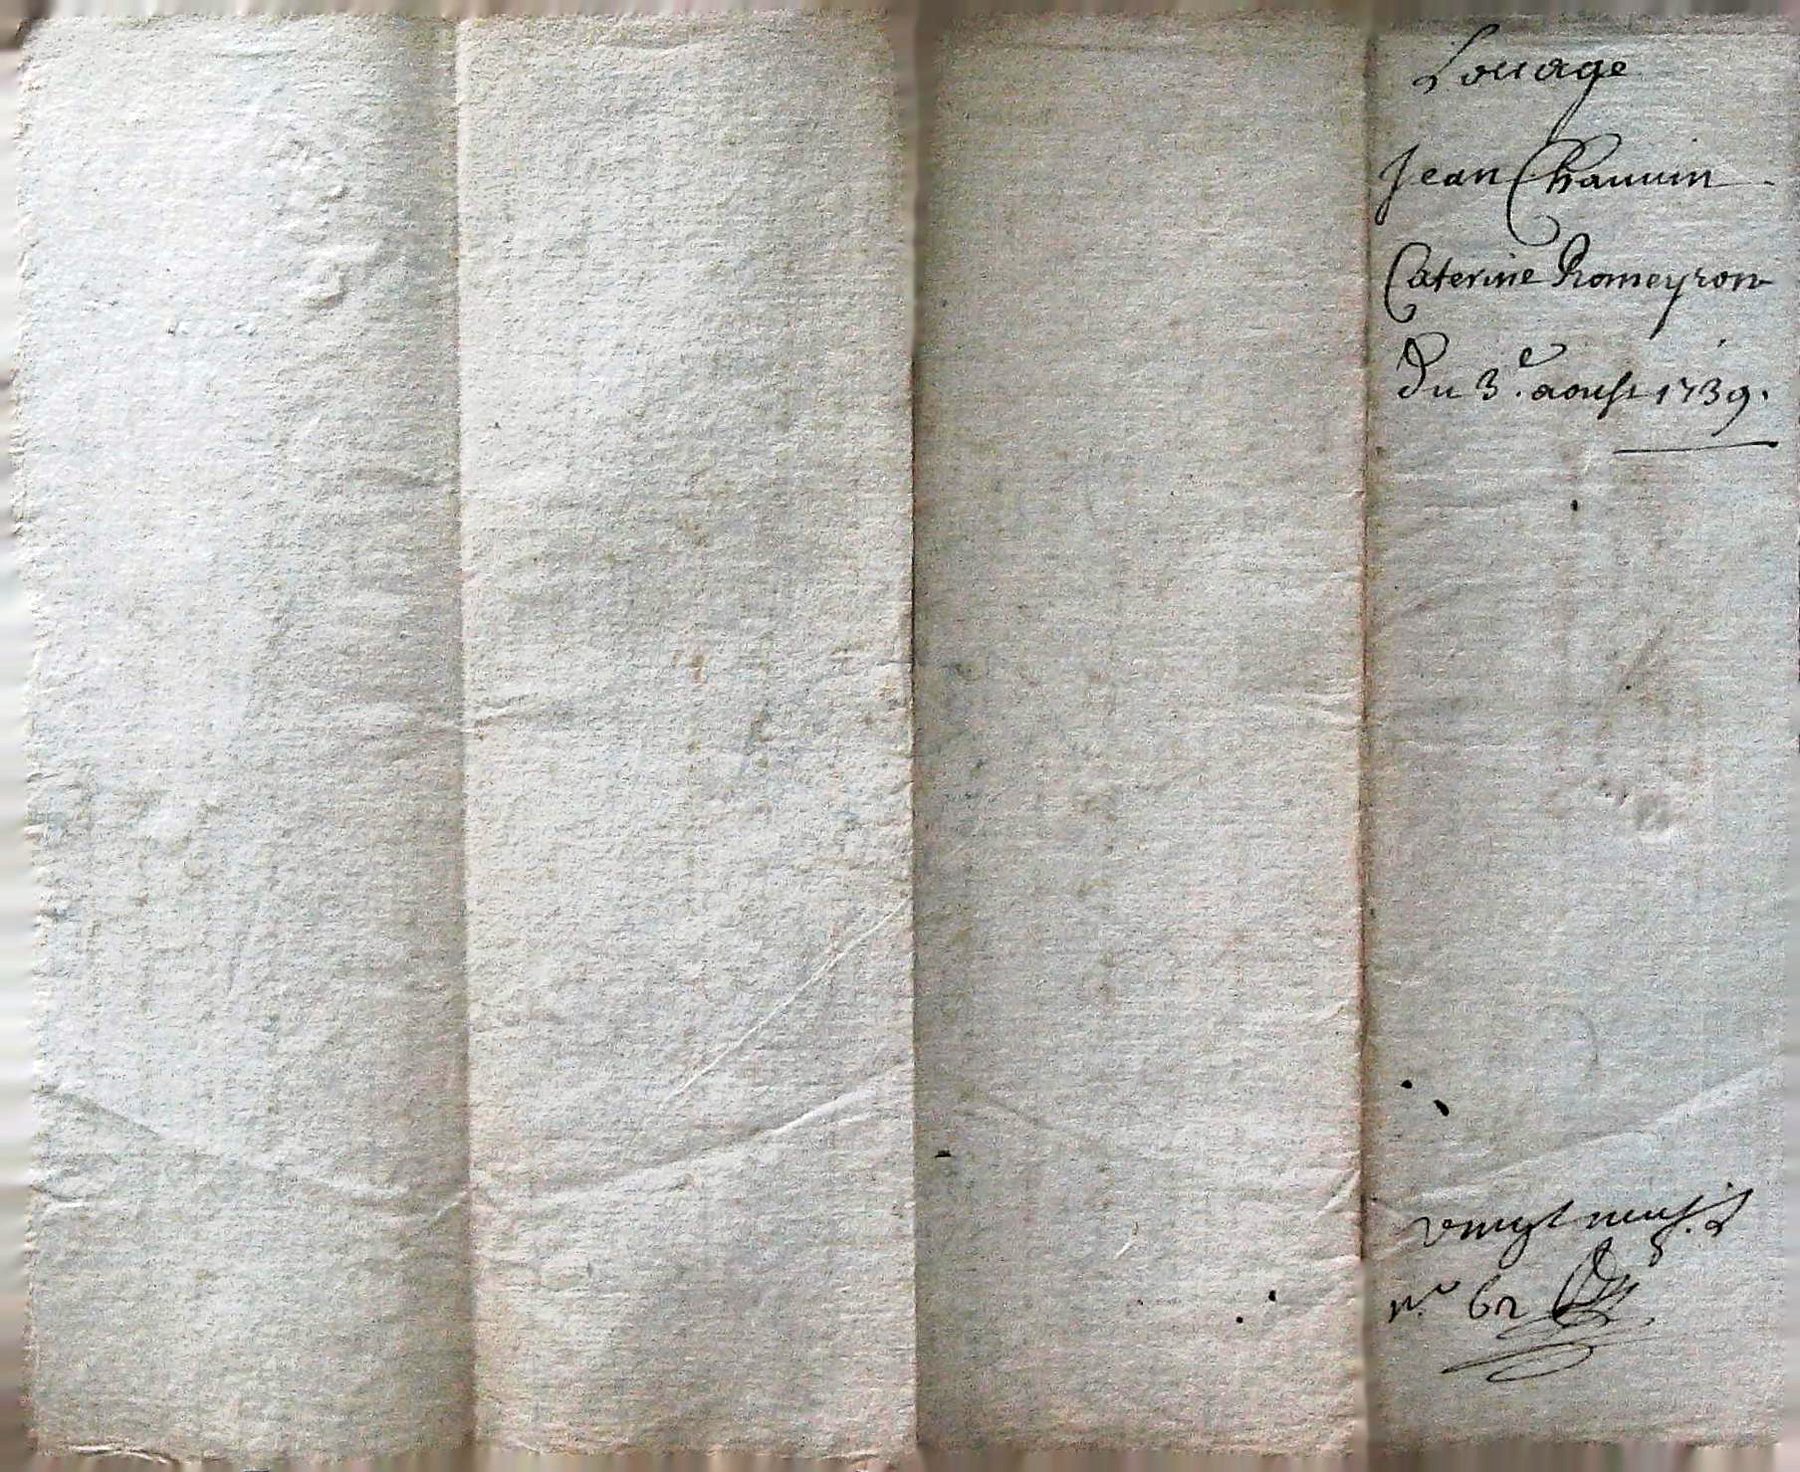 Louage
Jean Chauuin
Caterine Romeyron
Du 3.e aoust 1739.
vingt neuf s
n.o 62